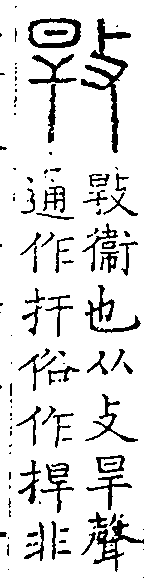 敤
敤衞也从攴旱聲
通作扞俗作捍非